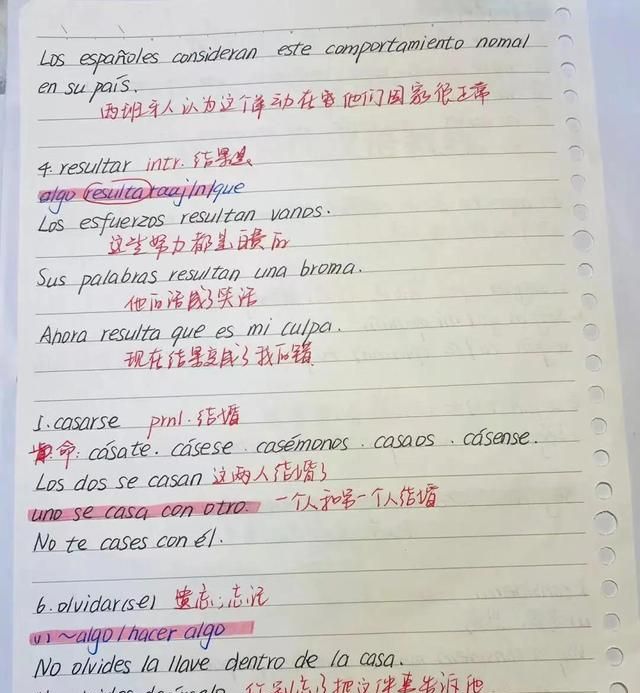 Los españoles consideran este comportamiento nomal
en su país.
西班牙人认为这个举动在他们国家很正常
4. resultar intr. 结果是
algo resulta + adj/n/que
Los esfuerzos resultan vanos.
这些努力都是白费的
Sus palabras resultan una broma.
他的话成了笑话
Ahora resulta que es mi culpa.
现在结果变成了我的错
5. casarse prnl. 结婚
命: cásate. cásese. casémonos. casaos. cásense.
Los dos se casan 这两人结婚了
uno se casa con otro. 一个人和另一个人结婚
No te cases con él.
6. olvidar(se) 遗忘; 忘记
~algo/hacer algo
No olvides la llave dentro de la casa.